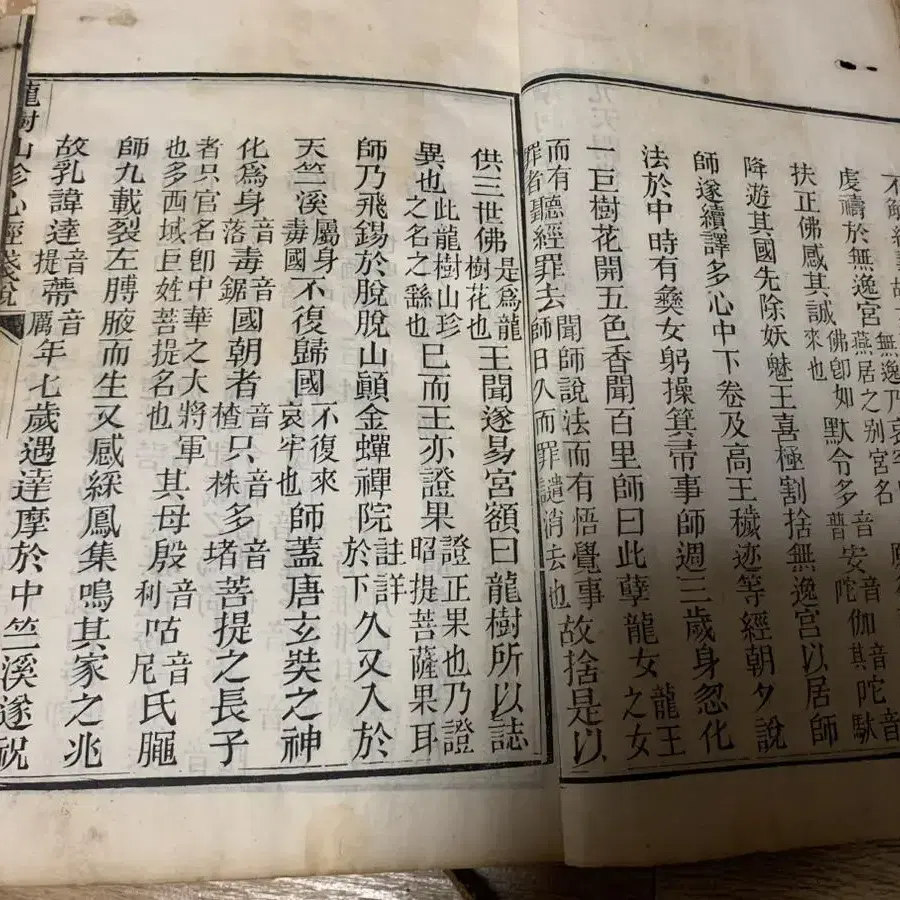 虔禱於無逸宮燕居之別宮名
扶正佛感其誠佛卽如來也默令多普音安陀伽
降遊其國先除妖魅王喜極割捨無逸宮以居師
師遂續譯多心中下卷及高王穢迹等經朝夕說
法於中時有彝女躬操箕帚事師週三歲身忽化
一巨樹花開五色香聞百里師曰此孽龍女龍王之女
聞師說法而有悟覺事
而有聽經罪去師日久而罪譴消去也故捨是以
供三世佛是爲龍樹花也王聞遂易宮額曰龍樹所以誌
異也此龍樹山珍之名之繇也巳而王亦證果證正果也乃證昭提菩薩果耳
師乃飛錫於脫脫山顚金蟬禪院註詳於下久又入於
天竺溪屬身毒國不復歸國不復來哀牢也師蓋唐玄奘之神
化爲身音落毒音鋸國朝者音楂只音株多音堵菩提之長子
者只官名卽中華之大將軍也多西域巨姓菩提名也其母殷音利咕音尼氏
師九載裂左膊腋而生又感綵鳳集鳴其家之兆
故乳諱達音提帶音厲年七歲遇達摩於中竺溪遂祝
龍樹山珍心經